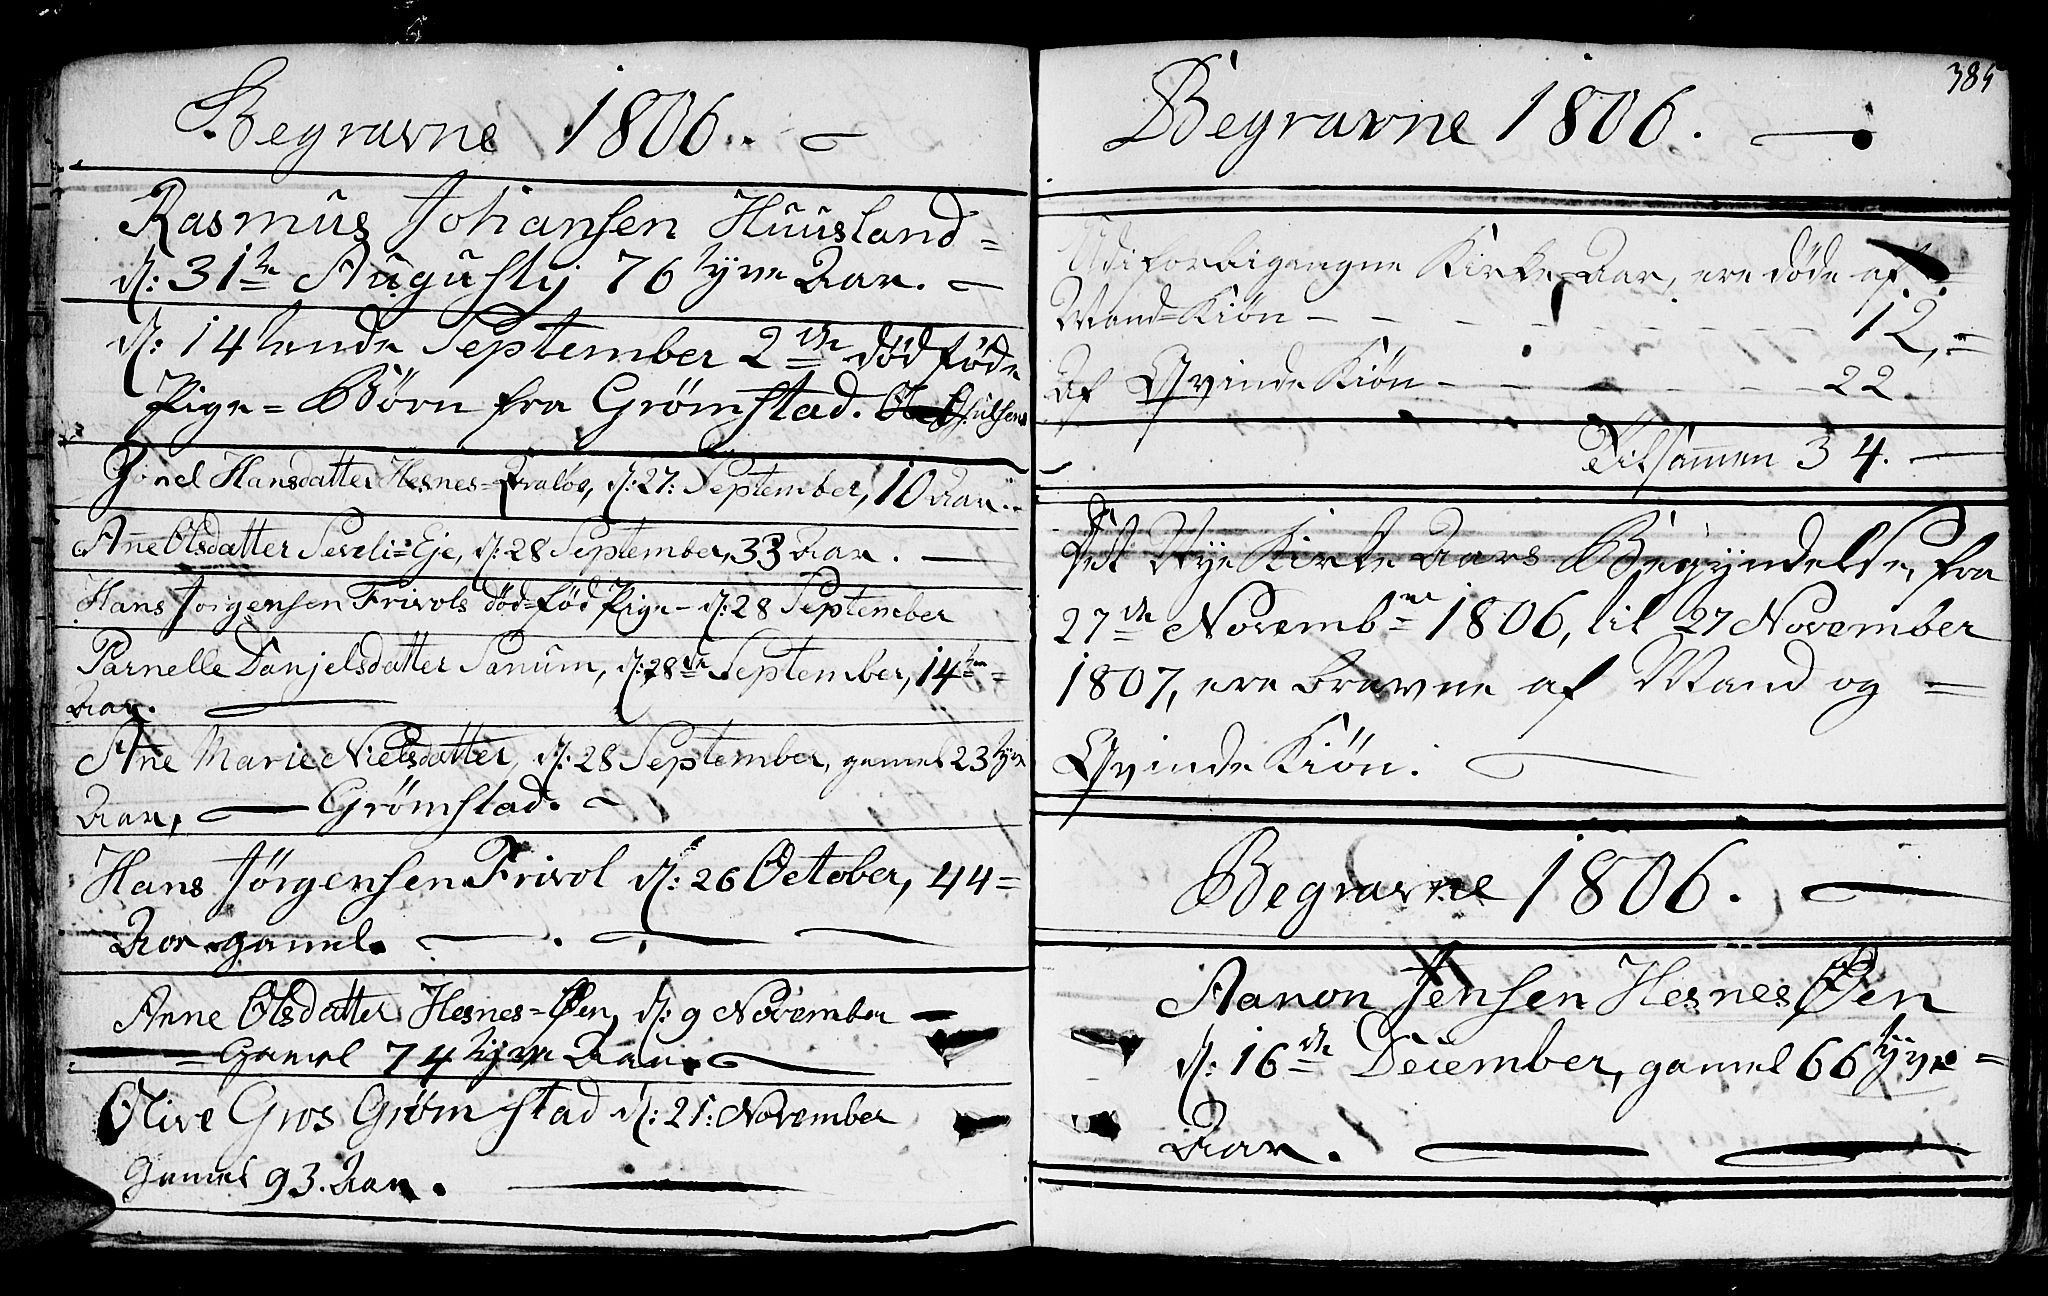 Begravne 1806.
Rasmus Johansen Huusland =
d: 31te Augustij 76tyve Aar.
d: 14tende September 2de død føde
Pige = Børn fra Grømstad.
Hansdatter Hesnes = d: 27: September, 10 Aar.
Anne Olsdatter Sevli = Eje, d: 28 September, 33 Aar.
Hans Jørgensen Frivols død = fød Pige - d: 28 September
Parnelle Danjelsdatter Sanum, d: 28de September, 14ten =
Aar.
Ane Marie Nielsdatter, d: 28 September, gamel 23tyve
Aar, Grømstad.
Hans Jørgensen Frivol d: 26 October, 44 =
Aar gamel.
Anne Olsdatter Hesnes = Øen, d: 9 November
= Gamel 74tyve Aar.
Olive Gros Grømstad d: 21: November
Gamel 93. Aar.
385
Begravne 1806.
Udi forbigangne Kirke = Aar, ere døde af
Mand = Kiøn - - - - - - - 12, =
Af Qvinde Kiøn - - - - - 22.
Tilsammen 34.
Det Nye Kirke Aars Begyndelse, fra
27de Novembr 1806, til 27 November
1807, ere bravne af Mand og =
Qvinde Kiøn.
Begravne 1806.
Aanon Jensen Hesnes Øen
d: 16de December, gamel 66tyve =
Aar.